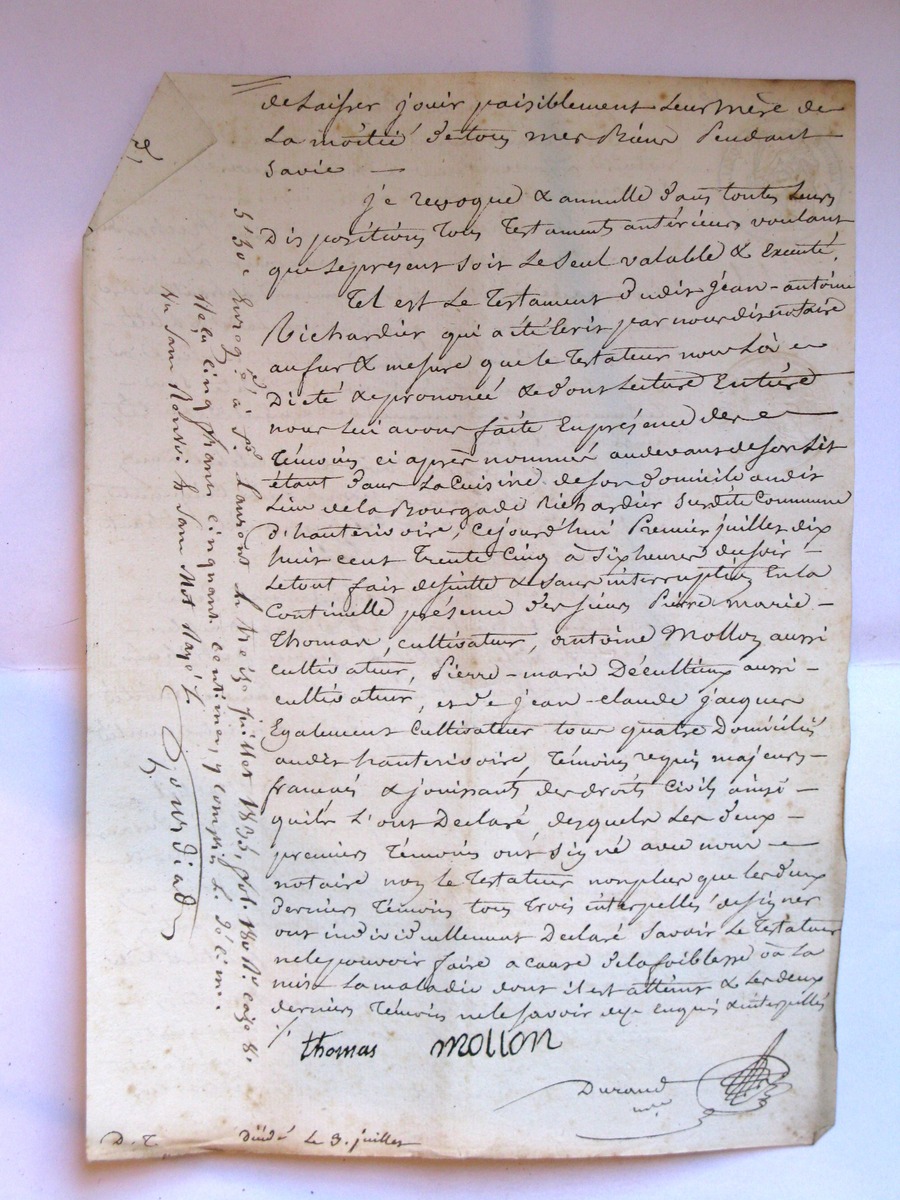 de Laisser jouir paisiblement Leur mère de
La moitié de tous mes Biens Pendant
Sa vie —
je revoque & annulle dans toutes Leurs
Dispositions Tous Testaments antérieurs voulant
que Le present Soit Le Seul valable & Executé.
Tel est Le Testament dudit jean-antoine
Richardier qui a été écrit par nous dit notaire
au fur & mesure que le Testateur nous L'a
Dicté & prononcé & dont Lecture Entière
nous Lui avons faite En présence des
Témoins ci après nommés au devant de son Lit
étant dans La Cuisine de son domicile audit
Lieu de la Bourgade Richardier Susdite Commune
d'hauterivoire, cejourd'hui Premier juillet dix
huit cent Trente Cinq à Six heures du soir —
Le tout fait de suitte & sans interruption En la
Continuelle présence des sieurs Pierre marie —
Thomas, cultivateur, antoine Mollon aussi
cultivateur, Pierre-marie Décultieux aussi —
cultivateur, et de jean-claude jacques
Egalement Cultivateur tous quatre Domiciliés
audit hauterivoire, Témoins requis majeurs —
francais & jouissants des droits Civils ainsi —
quils L'ont Declaré, desquels Les deux —
premiers Témoins ont signé avec nous
notaire non Le Testateur non plus que les deux
derniers Témoins tous Trois interpellés de signer
ont individuellement Declaré Savoir Le Testateur
ne le pouvoir faire a cause de la foiblesse où L'a
mis La maladie dont il est atteint & Les deux
derniers Témoins ne le savoir de ce Enquis & interpellés
thomas mollon
Durand
nre
D. T. Le 3. juillet
à St Laurent le treize juillet 1835, fol.
cinq francs cinquante centimes, y compris le décime.